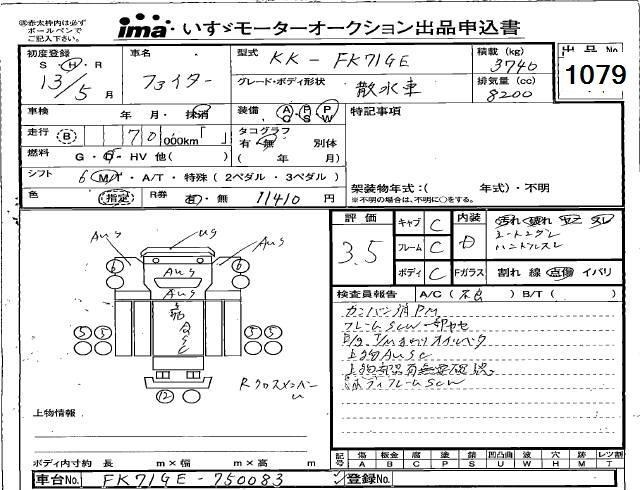 ㊟赤太枠内は必ず
ボールペンで
ご記入下さい。
ima いすゞモーターオークション出品申込書
初度登録
S・H・R
13/5 月
車名
ファイター
型式 KK-FK71GE
グレード・ボディ形状
散水車
積載 (kg)
3740
排気量 (cc)
8200
出品No
1079
車検 年 月・抹消
装備 A P P
G S W
特記事項
走行 B 70 000km「 」
タコグラフ
有・無 別体
( 年 月)
燃料 G・D・HV 他( )
シフト 6 M・A/T・特殊(2ペダル・3ペダル)
架装物年式:( 年式)・不明
※不明の場合は、不明に○をする。
色 (指定) R券 有・無 11410 円
評価
3.5
キャブ C
フレーム C
ボディ C
内装 D
Fガラス 割れ 線 点傷 イバリ
汚れ 破れ
ハンドルスレ
検査員報告 A/C(不良) B/T( )
カンバン消PM
フレームSCW
上物AUSC
AUS
US
AUS
6
6
AUS
AUS
5 5
5 5
12
Rクロスメンバー
U
上物情報
ボディ内寸約 長 m×幅 m×高 m
記号 傷 板金 腐 塗 錆 凹凸曲 波 穴 欠 目 レツ割
A B C P S U W H M T
車台No. FK71GE-750083
登録No.